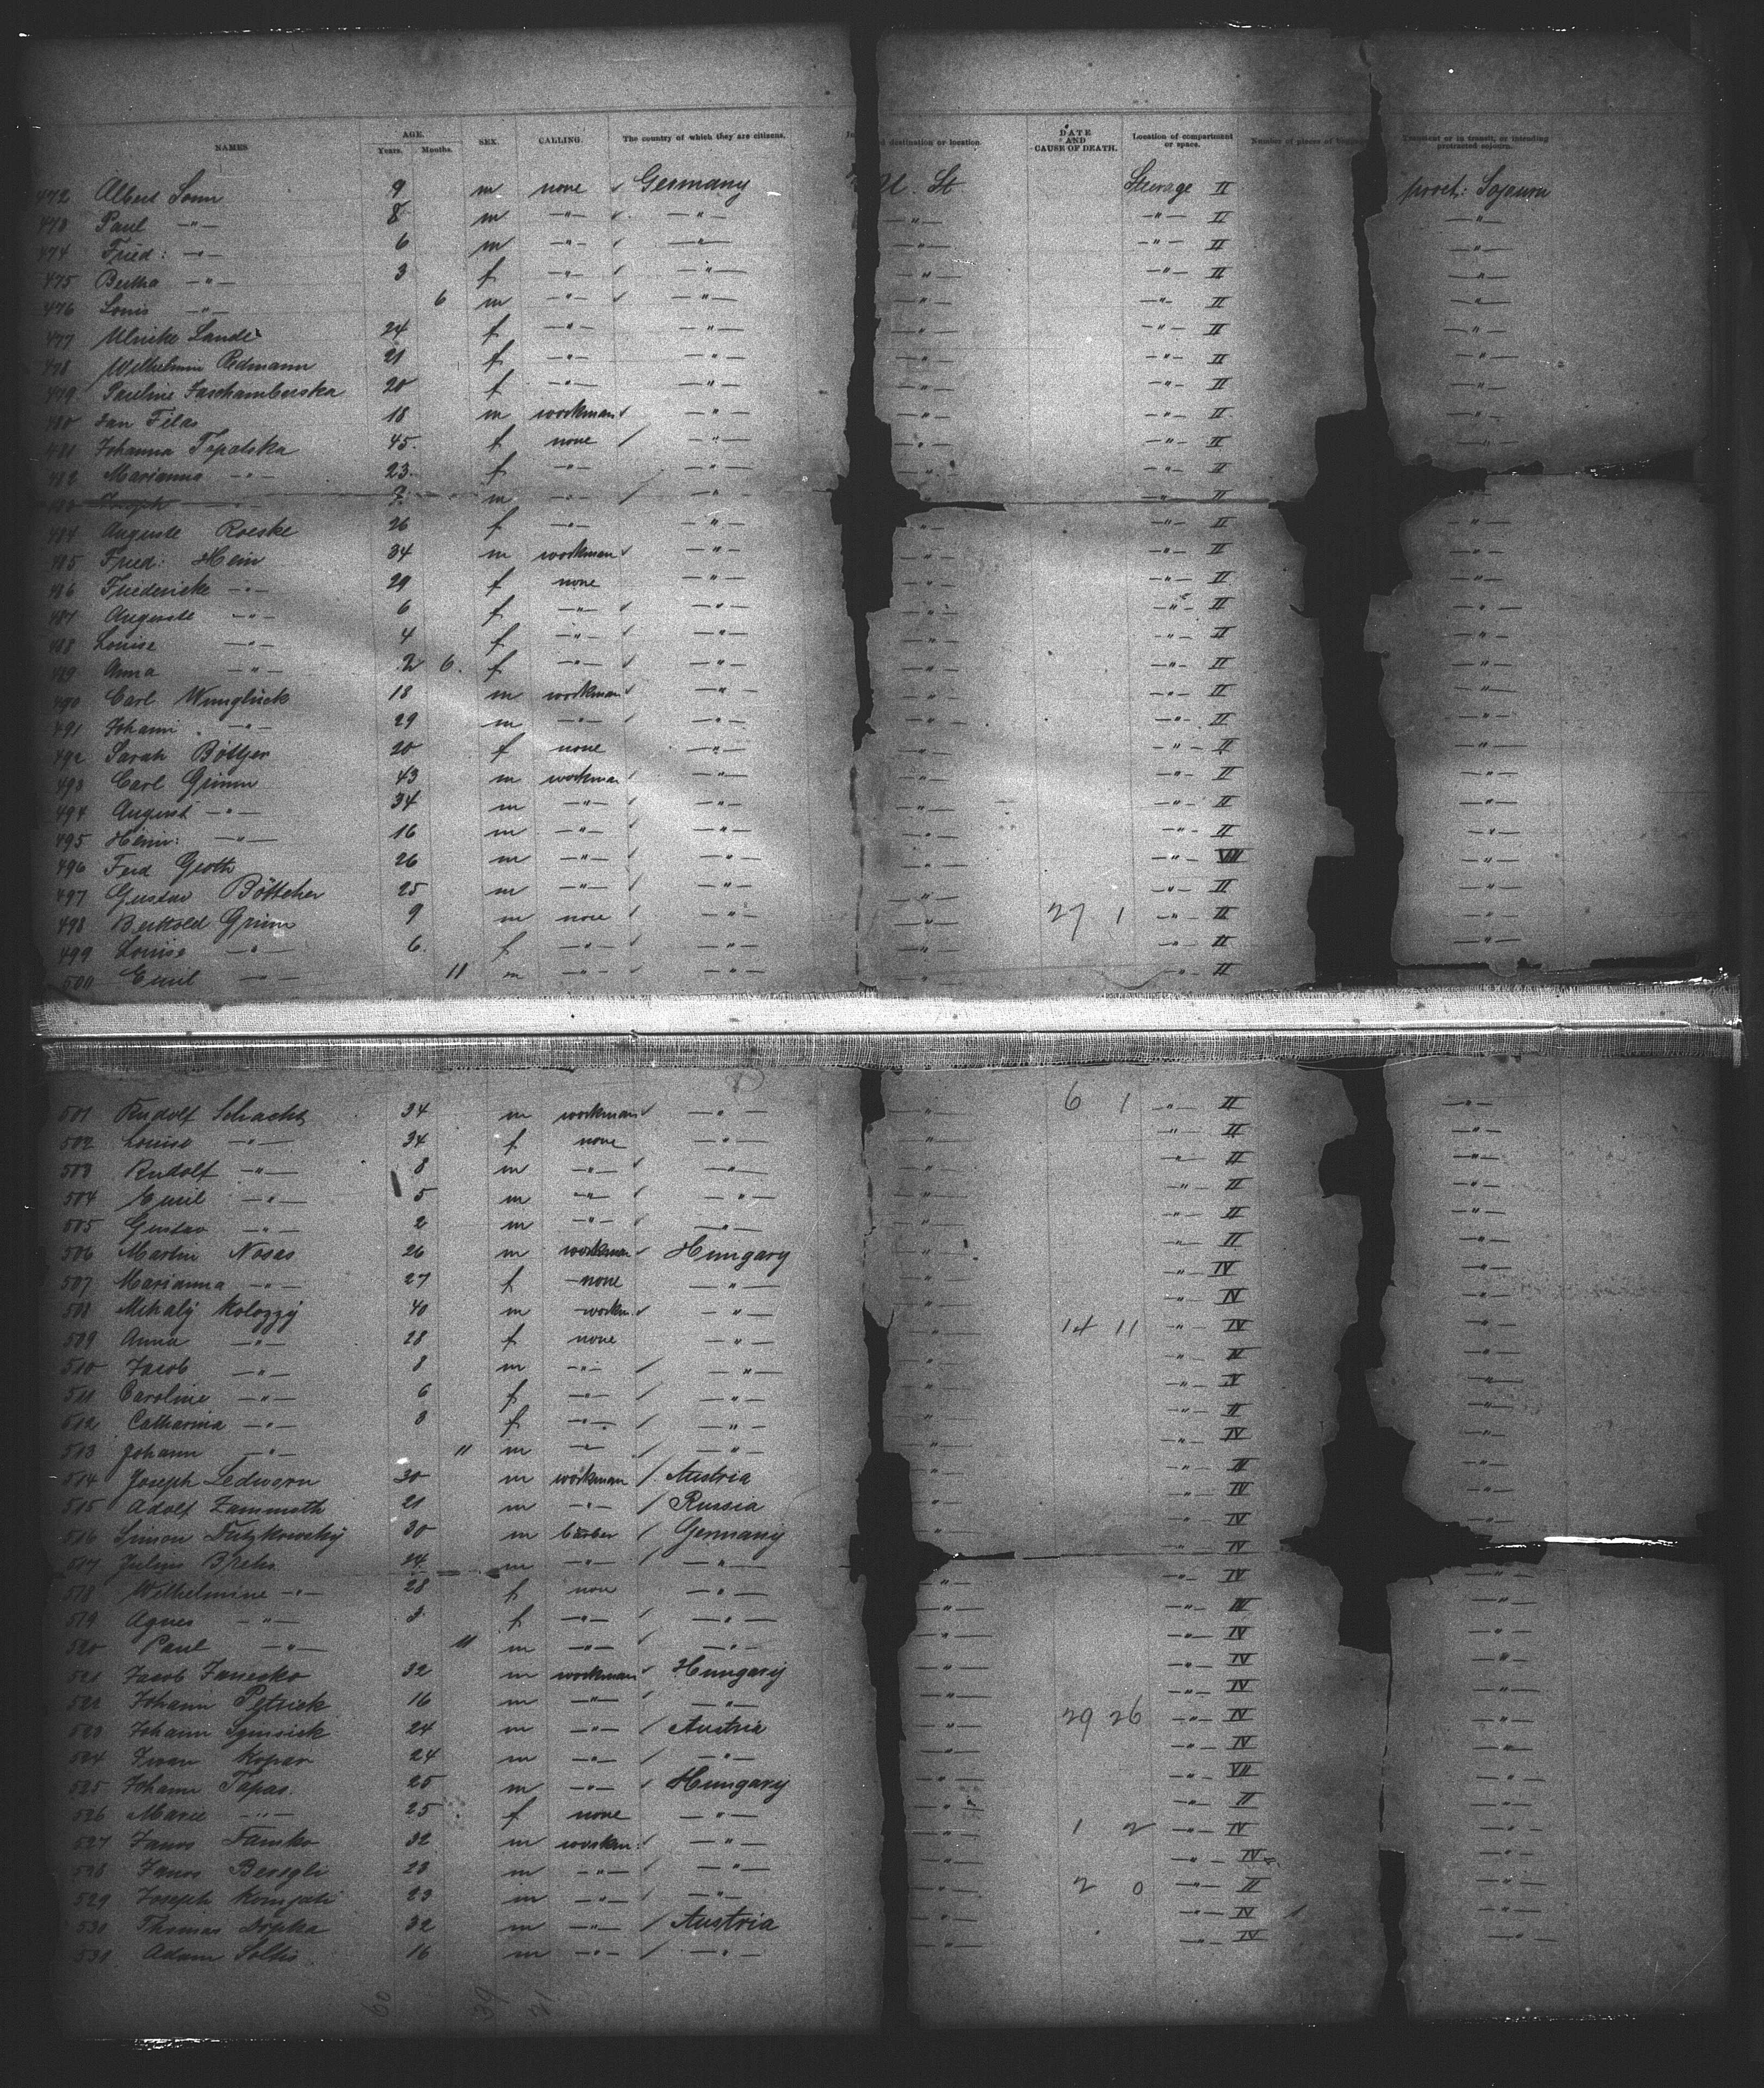 NAMES AGE. Years. Months. SEX. CALLING. The country of which they are citizens. In d destination or location. DATE AND CAUSE OF DEATH. Location of compartment or space. Number of pieces of Transient or in transit, or intending protracted sojourn.
472 Albert Sonn 9 m none ✓ Germany U. St Steerage II protr: Sojourn
473 Paul —"— 8 m —"— ✓ —"— —"— —"— II —"—
474 Fried: —"— 6 m —"— ✓ —"— —"— —"— II —"—
475 Bertha —"— 3 f —"— ✓ —"— —"— —"— II —"—
476 Louis —"— 6 m —"— ✓ —"— —"— —"— II —"—
477 Ulrike 24 f —"— —"— —"— —"— II —"—
478 Wilhelmin 21 f —"— —"— —"— —"— II —"—
479 Pauline 20 f —"— —"— —"— —"— II —"—
480 Jan Filas 18 m workman ✓ —"— —"— —"— II —"—
481 Johanna Topalska 45 f none / —"— —"— —"— II —"—
482 Marianna —"— 23 f —"— —"— —"— —"— II
483 Joseph —"— 9 m —"— / —"— —"— II
484 Auguste Roeske 26 f —"— —"— —"— —"— II —"—
485 Fried: Hein 34 m workman ✓ —"— —"— —"— II —"—
486 Friedericke —"— 29 f none —"— —"— —"— II —"—
487 Auguste —"— 6 f —"— ✓ —"— —"— —"— II —"—
488 Louise —"— 4 f —"— ✓ —"— —"— —"— II —"—
489 Anna —"— 2 6 f —"— ✓ —"— —"— —"— II —"—
490 Carl Wunglück 18 m workman ✓ —"— —"— —"— II —"—
491 Johann —"— 29 m —"— ✓ —"— —"— —"— II —"—
492 Sarah Böttjer 20 f none —"— —"— —"— II —"—
493 Carl Grimm 43 m workman ✓ —"— —"— —"— II —"—
494 August —"— 34 m —"— ✓ —"— —"— —"— II —"—
495 Heinr: —"— 16 m —"— ✓ —"— —"— —"— II —"—
496 Ferd Groth 26 m —"— ✓ —"— —"— —"— VIII —"—
497 Gustav Böttcher 25 m —"— ✓ —"— —"— —"— II —"—
498 Berthold Grimm 9 m none ✓ —"— —"— 27 1 —"— II —"—
499 Louise —"— 6 f —"— ✓ —"— —"— —"— II —"—
500 Emil —"— 11 m —"— ✓ —"— —"— —"— II
501 Rudolf Schacht 34 m workman ✓ —"— —"— 6 1 —"— II —"—
502 Louise —"— 34 f none —"— —"— —"— II —"—
503 Rudolf —"— 8 m —"— ✓ —"— —"— —"— II —"—
504 Emil —"— 5 m —"— ✓ —"— —"— —"— II —"—
505 Gustav —"— 2 m —"— ✓ —"— —"— —"— II —"—
506 Martin Nosas 26 m workman ✓ Hungary —"— —"— II —"—
507 Marianna —"— 27 f none —"— —"— —"— IV —"—
508 Mihaly Kolozzy 40 m workm. ✓ —"— —"— —"— IV —"—
509 Anna —"— 28 f none —"— —"— 14 11 —"— IV —"—
510 Jacob —"— 8 m —"— / —"— —"— —"— —"—
511 Caroline —"— 6 f —"— / —"— —"— —"— —"—
512 Catharina —"— 3 f —"— / —"— —"— —"— II —"—
513 Johann —"— 11 m —"— / —"— —"— —"— IV —"—
514 Joseph 30 m workman / Austria —"— —"— —"—
515 Adolf Zammoth 21 m —"— / Russia —"— —"— IV —"—
516 Simon 30 m barber / Germany —"— —"— IV —"—
517 Julius 24 m —"— / —"— —"— IV
518 Wilhelmine —"— 28 f none —"— —"— —"— IV —"—
519 Agnes —"— 3 f —"— / —"— —"— —"— —"—
520 Paul —"— 11 m —"— ✓ —"— —"— —"— IV —"—
521 Jacob Janesko 32 m workman ✓ Hungary —"— —"— IV —"—
522 Johann Petrick 16 m —"— ✓ —"— —"— —"— IV —"—
523 Johann 24 m —"— / Austria —"— 29 26 —"— IV —"—
524 Iwan Kopar 24 m —"— / —"— —"— —"— IV —"—
525 Johann Tapas 25 m —"— ✓ Hungary —"— —"— VII —"—
526 Marie —"— 25 f none —"— —"— —"— II —"—
527 Janos Famko 32 m workm: ✓ —"— —"— 1 2 —"— IV —"—
528 Janos Beregli 23 m —"— ✓ —"— —"— —"— IV —"—
529 Joseph 23 m —"— ✓ —"— —"— 2 0 —"— II —"—
530 Thomas 32 m —"— / Austria —"— —"— IV —"—
531 Adam Soltis 16 m —"— / —"— —"— —"— IV —"—
60 39 21